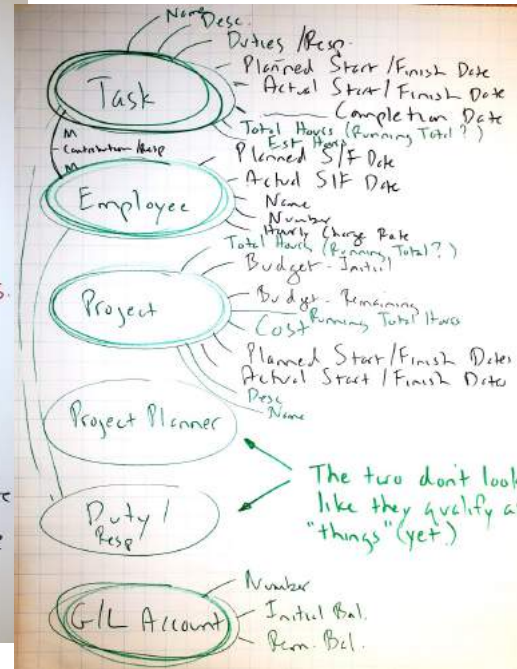 Name
Desc.
Duties /Resp.
Planned Start/Finish Date
Actual Start/Finish Date
Completion Date
Task
Total Hours (Running Total?)
Est Hours
M
Contribution /Resp
M
Planned S/F Date
Actual S/F Date
Name
Number
Hourly Charge Rate
Employee
Total Hours (Running Total?)
Budget - Initial
Budget - Remaining
Running Total Hours
Cost
Project
Planned Start/Finish Dates
Actual Start/Finish Dates
Desc
Name
Project Planner
The two don't look
like they qualify a
"things" (yet)
Duty /
Resp
Number
Initial Bal.
Rem. Bal.
G/L Account